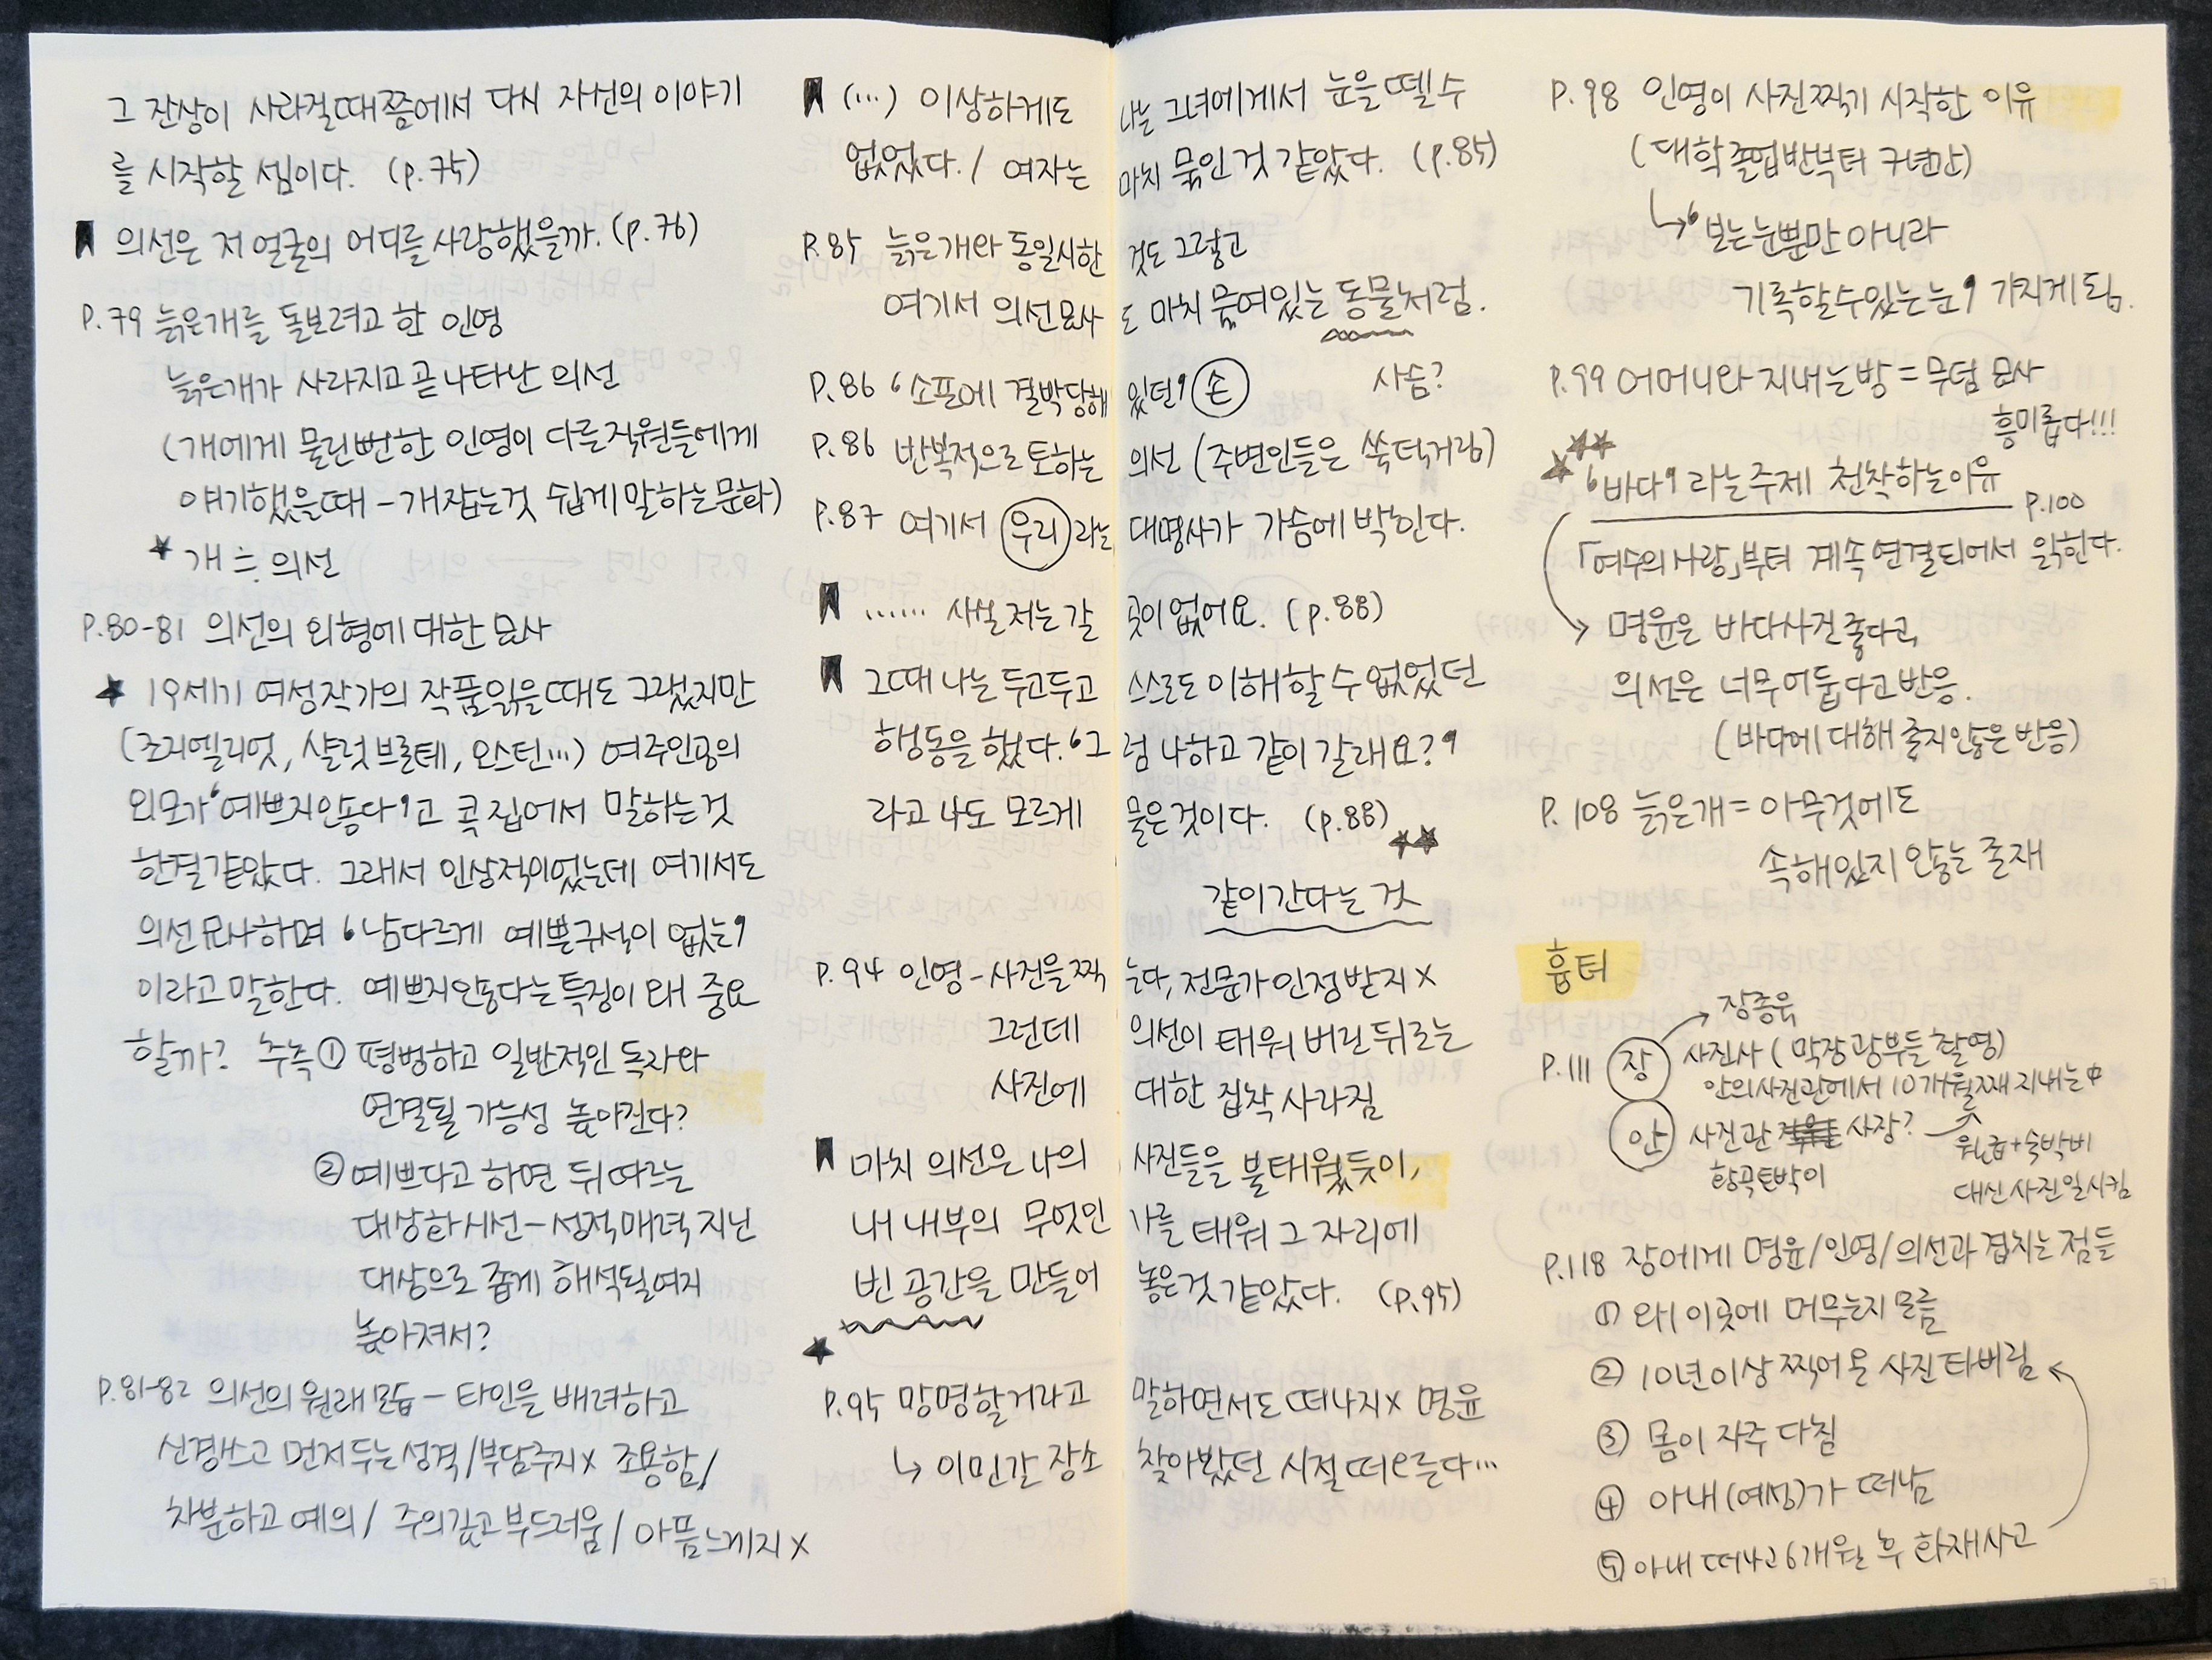 그 잔상이 사라질때쯤에서 다시 자신의 이야기
를 시작할 셈이다. (p.75)
의선은 저 얼굴의 어디를 사랑했을까. (p.76)
P.79 늙은개를 돌보려고 한 인영
늙은개가 사라지고 곧 나타난 의선
(개에게 물린뻔한 인영이 다른직원들에게
얘기했을때 - 개잡는것 쉽게 말하는문화)
★ 개 ≒ 의선
P.80-81 의선의 외형에 대한 묘사
★ 19세기 여성작가의 작품읽을때도 그랬지만
(조지엘리엇, 샬럿브론테, 오스틴...) 여주인공의
외모가 '예쁘지않다'고 콕 집어서 말하는것
한결같았다. 그래서 인상적이었는데 여기서도
의선묘사하며 '남다르게 예쁜구석이 없는'
이라고 말한다. 예쁘지않다는 특징이 왜 중요
할까? 추측 ① 평범하고 일반적인 독자와
연결될 가능성 높아진다?
② 예쁘다고 하면 뒤따르는
대상화시선 - 성적매력 지닌
대상으로 좁게 해석될여지
높아져서?
P.81-82 의선의 원래모습 - 타인을 배려하고
신경쓰고 먼저두는성격/부담주지x 조용함/
차분하고 예의/ 주의깊고 부드러움/ 아픔느끼지 x
(...) 이상하게도 나는 그녀에게서 눈을 뗄 수
없었다. / 여자는 마치 묶인 것 같았다. (p.85)
P.85 늙은개와 동일시한 것도 그렇고
여기서 의선묘사도 마치 묶여있는 동물처럼.
사슴?
P.86 '소파에 결박당해 있던' 손
P.86 반복적으로 토하는 의선 (주변인들은 쑥덕거림)
P.87 여기서 우리 라는 대명사가 가슴에 박힌다.
...... 사실 저는 갈 곳이 없어요. (p.88)
그때 나는 두고두고 스스로도 이해할 수 없었던
행동을 했다. '그럼 나하고 같이 갈래요?'
라고 나도 모르게 물은것이다. (p.88)
★★
같이간다는 것
P.94 인영 - 사진을 찍는다, 전문가 인정받지 x
그런데 의선이 태워 버린 뒤로는
사진에 대한 집착 사라짐
마치 의선은 나의 사진들을 불태웠듯이,
내 내부의 무엇인가를 태워 그 자리에
빈 공간을 만들어 놓은것 같았다. (p.95)
★
P.95 망명할거라고 말하면서도 떠나지x 명윤
↳ 이민갈 장소 찾아봤던 시절 떠오른다...
P.98 인영이 사진찍기 시작한 이유
(대학졸업반부터 9년간)
↳ '보는눈뿐만 아니라
기록할수있는눈' 가지게됨.
P.99 어머니와 지내는방 = 무덤 묘사
흥미롭다!!!
★★★
'바다'라는주제 천착하는이유
p.100
「여수의 사랑」부터 계속 연결되어서 읽힌다.
→ 명윤은 바다사진좋다고,
의선은 너무어둡다고반응.
(바다에대해 좋지않은 반응)
P.108 늙은개 = 아무것에도
속해있지 않는 존재
흉터
장종욱
P.111 장 사진사 (막장 광부들 촬영)
안의사진관에서 10개월째 지내는中
안 사진관 사장?
황곡토박이
월급+숙박비
대신 사진일시킴
P.118 장에게 명윤/인영/의선과 겹치는 점들
① 왜 이곳에 머무는지 모름
② 10년이상 찍어온 사진 타버림
③ 몸이 자주 다침
④ 아내(여성)가 떠남
⑤ 아내 떠나고 6개월 후 화재사고
51